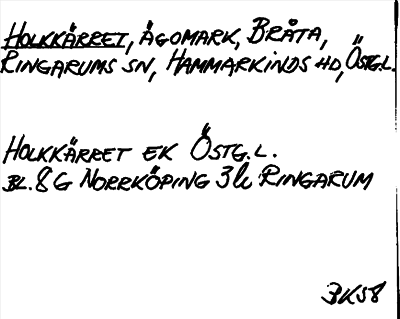 HOLKKÄRRET, ÄGOMARK, BRÅTA,
RINGARUMS SN, HAMMARKINDS HD, ÖSTG.L.
HOLKKÄRRET EK ÖSTG.L.
BL. 8G NORRKÖPING 3h RINGARUM
BK58